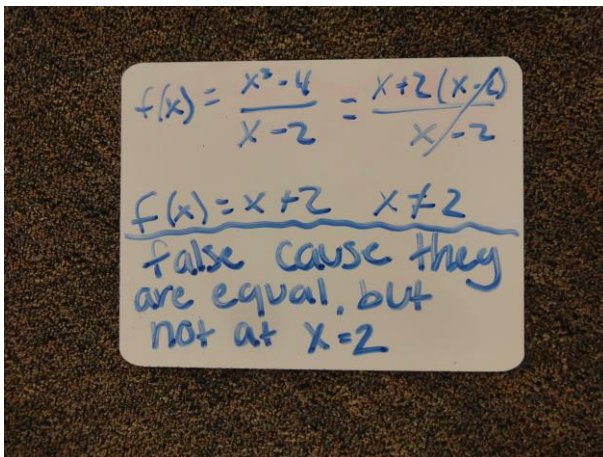 f(x) = x²-4 / x-2 = x+2(x-2) / x-2
f(x) = x+2 x≠2
false cause they
are equal, but
not at x=2